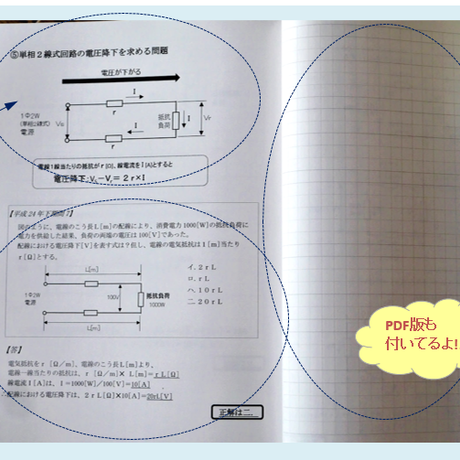 ⑤単相2線式回路の電圧降下を求める問題
電圧が下がる
I
r
1Φ2W
(単相2線式)
電源
Vs
I
抵抗
負荷
Vr
r
I
電線1線当たりの抵抗がr[Ω]、線電流をI[A]とすると
電圧降下:Vs−Vr=2r×I
【平成24年下期問7】
図のように、電線のこう長L[m]の配線により、消費電力1000[W]の抵抗負荷に
電力を供給した結果、負荷の両端の電圧は100[V]であった。
配線における電圧降下[V]を表す式は?但し、電線の電気抵抗は1[m]当たり
r[Ω]とする。
L[m]
1Φ2W
電源
100V
抵抗負荷
1000W
L[m]
イ.2rL
ロ.rL
ハ.10rL
ニ.20rL
【答】
電気抵抗をr[Ω/m]、電線のこう長L[m]より、
電線一線当たりの抵抗は、r[Ω/m]×L[m]=rL[Ω]
線電流I[A]は、I=1000[W]/100[V]=10[A]
配線における電圧降下は、2rL[Ω]×10[A]=20rL[V]
正解は二.
PDF版も
付いてるよ!